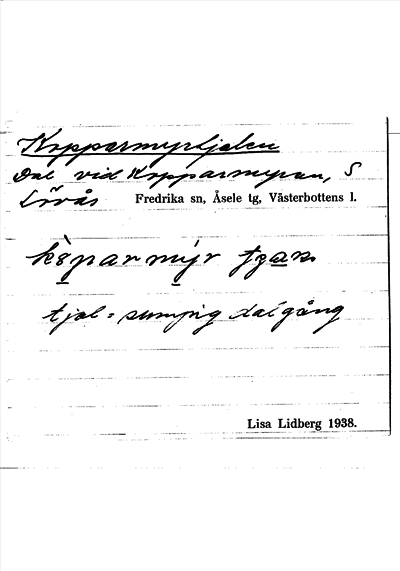 Kopparmyrtjalen
Dal vid Kopparmyran, S
Lövås Fredrika sn, Åsele tg, Västerbottens l.
tjal = sumpig dalgång
Lisa Lidberg 1938.